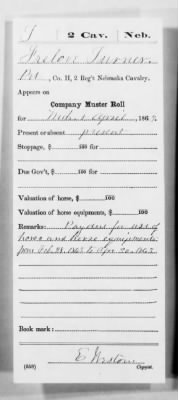 T | 2 Cav. | Neb.
Turner
Pvt, Co. H, 2 Reg't Nebraska Cavalry.
Appears on
Company Muster Roll
for March & April, 1863.
Present or absent present
Stoppage, $ 100 for
Due Gov't, $ 100 for
Valuation of horse, $ 100
Valuation of horse equipments, $ 100
Remarks: Pay due for use of
horse and horse equipments
from Feb. 28, 1863 to Apr. 30, 1863.
Book mark:
(858)
Copyist.